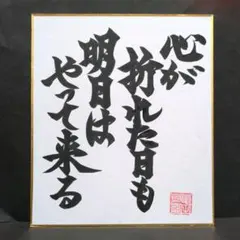 心が
折れた日も
明日は
やって来る